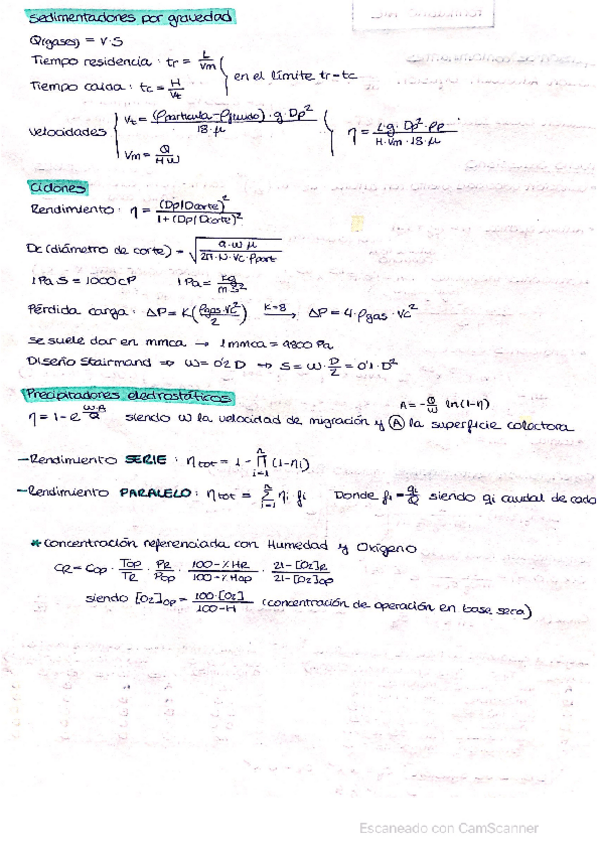 Sedimentadores por gravedad
Q(gases) = V·S
Tiempo residencia: tr = L/Vm
Tiempo caída: tc = H/Vt
en el límite tr=tc
Velocidades
Vt = (ρpartícula-ρfluido)·g·Dp²/18·μ
Vm = Q/H·W
η = L·g·Dp²·ρp/H·Vm·18·μ
Ciclones
Rendimiento: η = (Dp/Dcorte)²/1+(Dp/Dcorte)²
Dc (diámetro de corte) = √9·W·μ/2π·N·Vc·ρpart
1 Pa S = 1000 cP 1 Pa = kg/m s²
Pérdida carga: ΔP = K(ρgas·Vc²/2) K=8 → ΔP = 4·ρgas·Vc²
se suele dar en mmca → 1 mmca = 9800 Pa
Diseño Stairmand ⇒ W=0'2 D ⇒ S = W·D/2 = 0'1·D²
Precipitadores electrostáticos
A = -Q/ω ln(1-η)
η = 1-e^ω·A/Q siendo ω la velocidad de migración y A la superficie colectora
-Rendimiento SERIE: ηtot = 1 - ∏ i=1 n (1-ηi)
-Rendimiento PARALELO: ηtot = Σ i=1 n ηi fi Donde fi = qi/Q siendo qi caudal de cada
* Concentración referenciada con Humedad y Oxígeno
CR = Cop · Top/TR · PR/Pop · 100-%HR/100-%Hop · 21-[O2]R/21-[O2]op
siendo [O2]op = 100·[O2]/100-H (concentración de operación en base seca)
Escaneado con CamScanner